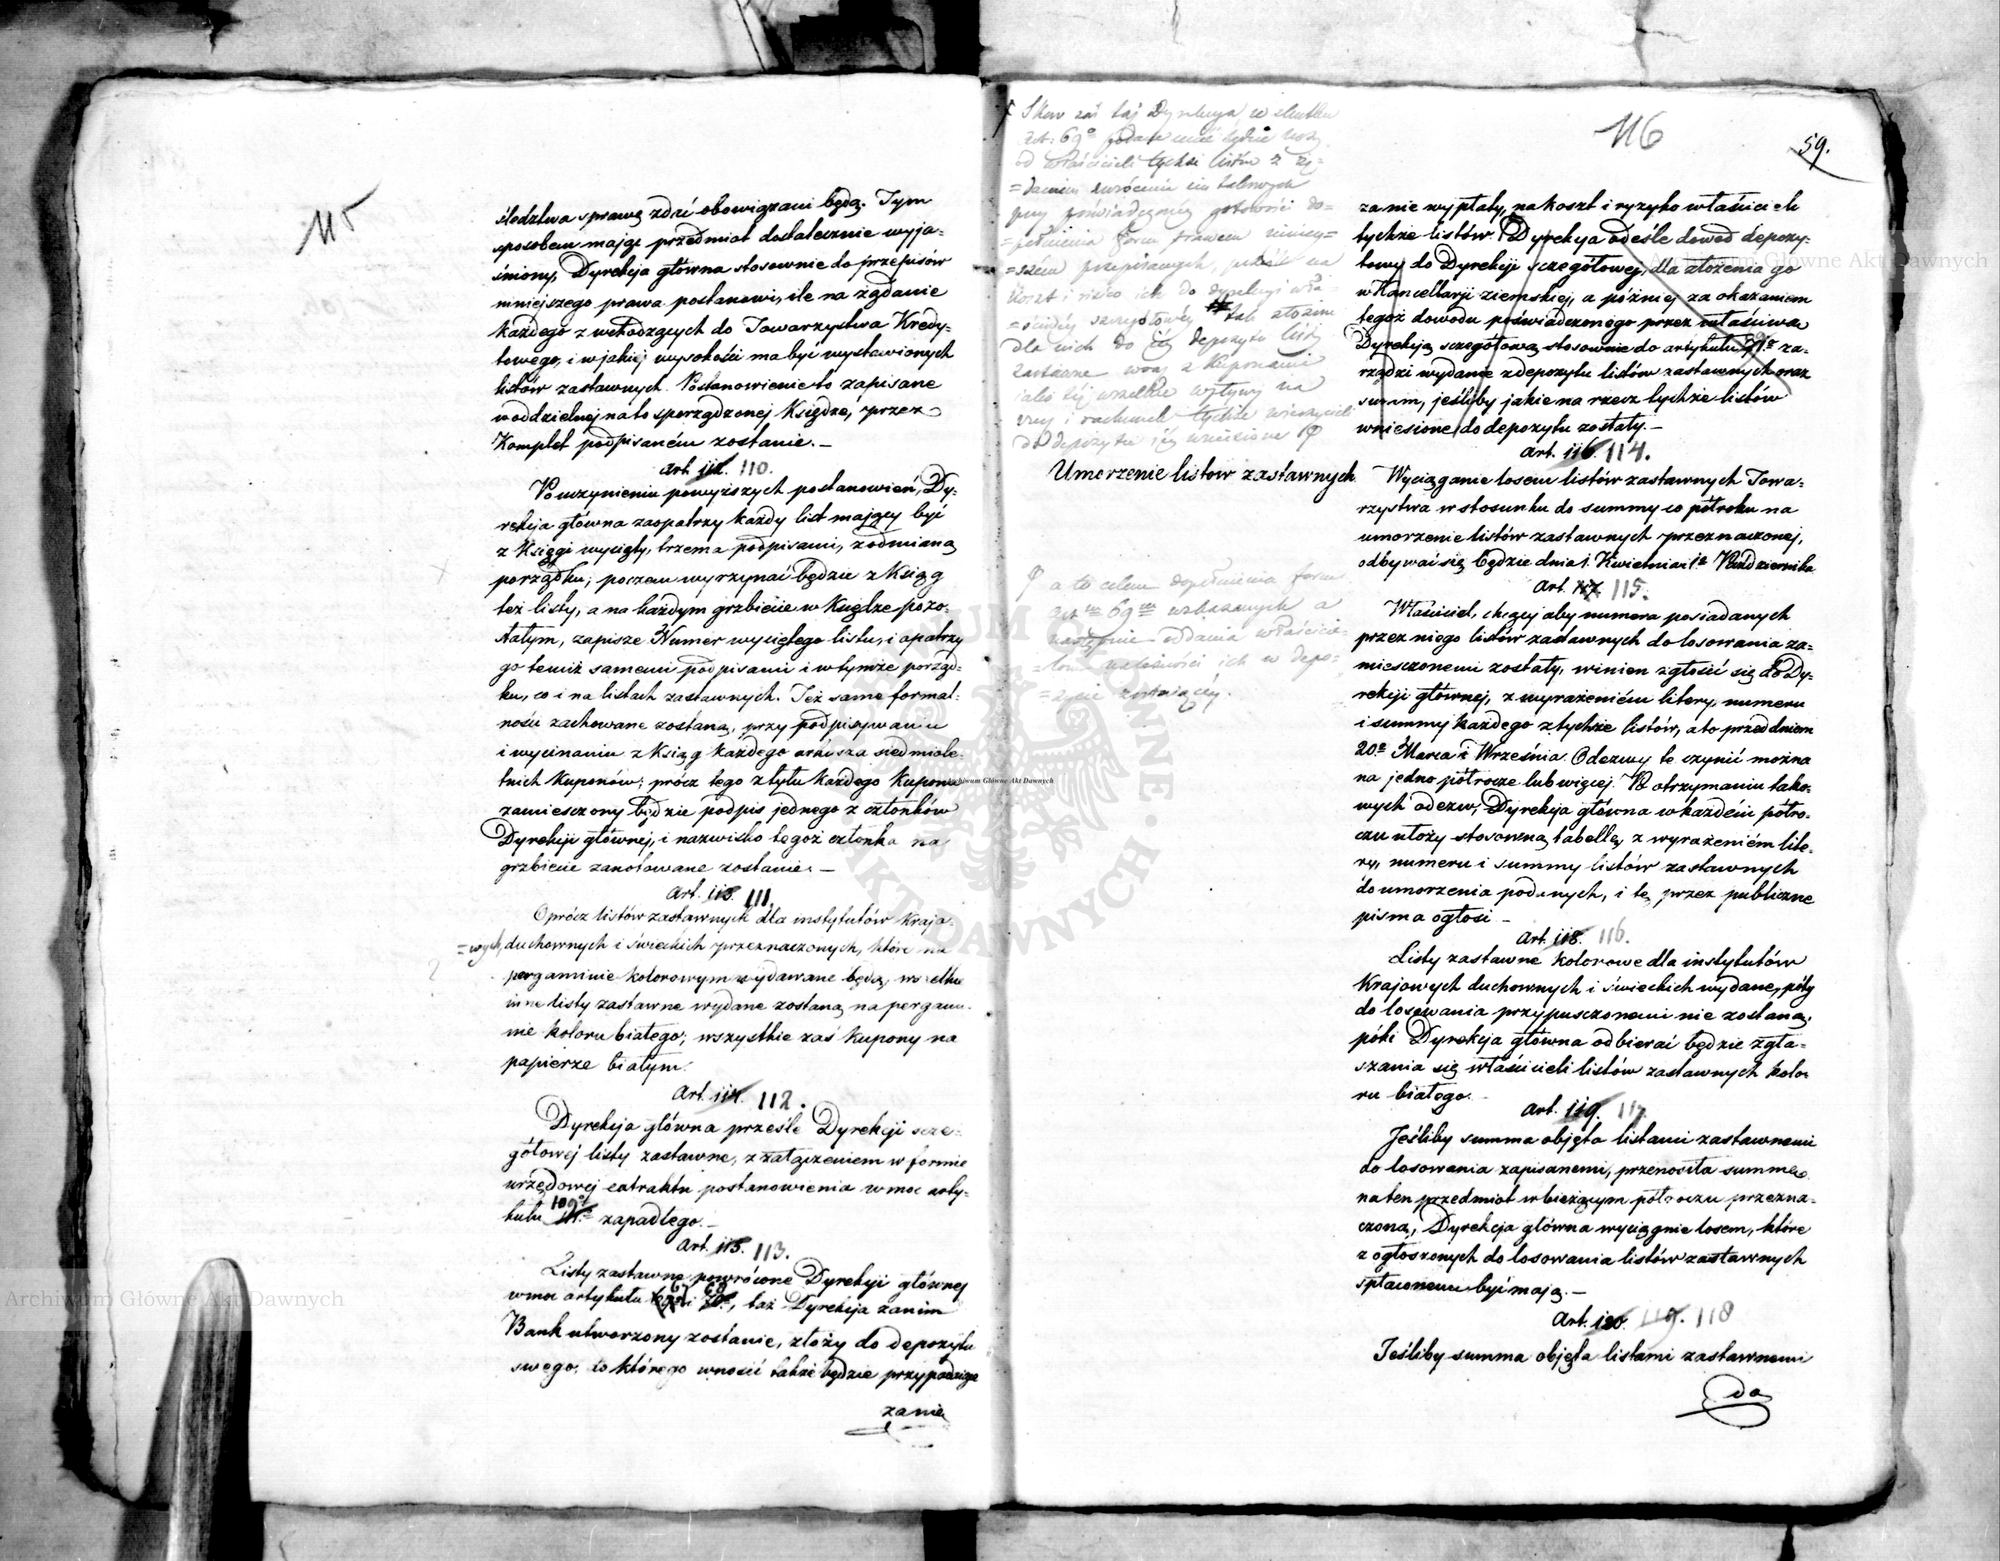 115
śledztwa sprawę zdać obowiązani będą. Tym
sposobem mając przedmiot dostatecznie wyja-
śniony, Dyrekcja główna stosownie do przepisów
niniejszego prawa postanowi, ile na żądanie
każdego z wchodzących do Towarzystwa Kredy-
towego, i w jakiej wysokości ma być wystawionych
listów zastawnych. Postanowienie to zapisane
w oddzielnej na to sporządzonej Księdze, przez
Komplet podpisaném zostanie. —
Art. 112. 110.
Po uczynieniu powyższych postanowień, Dy-
rekcja główna zaopatrzy każdy list mający być
z Księgi wycięty, trzema podpisami, z odmianą
porządku; poczem wyrzynać będzie z Ksiąg
też listy, a na każdym grzbiecie w Księdze pozo-
stałym, zapisze Numer wyciętego listu, i opatrzy
go temiż samemi podpisami i w tymże porząd-
ku, co i na listach zastawnych. Też same formal-
ności zachowane zostaną, przy podpisywaniu
i wycinaniu z Ksiąg każdego arkusza siedmiole-
tnich Kuponów; prócz tego z tyłu każdego Kuponu
zamieszczony będzie podpis jednego z członków
Dyrekcji głównej, i nazwisko tegoż członka na
grzbiecie zanotowane zostanie. —
Art. 113. 111.
Oprócz listów zastawnych dla instytutów krajo-
=wych, duchownych i świeckich przeznaczonych, które na
pergaminie kolorowym wydawane będą, wszelkie
inne listy zastawne wydane zostaną na pergami-
nie koloru białego; wszystkie zaś Kupony na
papierze białym.
Art. 114. 112.
Dyrekcja główna prześle Dyrekcji szcze-
gółowej listy zastawne, z załączeniem w formie
urzędowej extraktu postanowienia w moc arty-
kułu 109º zapadłego. —
Art. 115. 113.
Listy zastawne powrócone Dyrekcji głównej
w moc artykułu 67 i 68, taż Dyrekcja zanim
Bank utworzony zostanie, złoży do depozytu
swego, do którego wnosić także będzie przypadaja
zanie
116
59.
X Skoro zaś taż Dyrekcja w skutku
art: 69º
od właścicieli tychże listów z żą-
=daniem zwrócenia im takowych
przy poświadczeniu gotowości do-
=pełnienia form prawem niniej-
=szém przepisanych, prześle na
koszt i risiko ich do dyrekcji wła-
=ściwéj szczegółowéj tak złożone
dla nich do jéj depozytu listy
zastawne wraz z kuponami
jako téj wszelkie wpływy na
rzecz i rachunek tychże wierzycieli
do depozytu jéj wniesione φ
φ a to celem dopełnienia form
art 69 wskazanych a
następnie oddania właścicie-
=lom należności ich w depo-
=zycie zostającéj.
za nie wypłaty, na koszt i ryzyko właścicieli
tychże listów. Dyrekcja odeśle dowód depozy-
towy do Dyrekcji szczegółowej, dla złożenia go
w Kancellarji ziemskiej, a później za okazaniem
tegoż dowodu poświadczonego przez właściwą
Dyrekcją szczegółową stosownie do artykułu za-
rządzi wydanie z depozytu listów zastawnych oraz
summ, jeśliby jakie na rzecz tychże listów
wniesione do depozytu zostały. —
Art. 116. 114.
Umorzenie listów zastawnych
Wyciąganie losem listów zastawnych Towa-
rzystwa w stosunku do summy co półroku na
umorzenie listów zastawnych przeznaczonej,
odbywać się będzie dnia 1. Kwietnia i 1º Października
Art. 117. 115.
Właściciel, chcący aby numera posiadanych
przez niego listów zastawnych do losowania za-
mieszczonemi zostały, winien zgłosić się do Dy-
rekcji głównej, z wyrażeniem litery, numeru
i summy każdego z tychże listów, a to przed dniem
20º Marca i Września. Odezwy te czynić można
na jedno półrocze lub więcej. Po otrzymaniu tako-
wych odezw, Dyrekcja główna w każdém półro-
czu ułoży stosowną tabellę, z wyrażeniém lite-
ry, numeru i summy listów zastawnych
do umorzenia podanych, i tę przez publiczne
pisma ogłosi —
Art. 118. 116.
Listy zastawne kolorowe dla instytutów
Krajowych duchownych i świeckich wydane, póty
do losowania przypuszczonemi nie zostaną,
póki Dyrekcja główna odbierać będzie zgła-
szania się właścicieli listów zastawnych kolo-
ru białego.
Art. 119. 117.
Jeśliby summa objęta listami zastawnemi
do losowania zapisanemi, przenosiła summę
na ten przedmiot w bieżącym półroczu przezna-
czoną, Dyrekcja główna wyciągnie losem, które
z ogłoszonych do losowania listów zastawnych
spłaconemi być mają. —
Art. 120. 119. 118
Jeśliby summa objęta listami zastawnemi
do
Archiwum Główne Akt Dawnych
Archiwum Główne Akt Dawnych
Archiwum Główne Akt Dawnych
ARCHIWUM GŁÓWNE AKT DAWNYCH